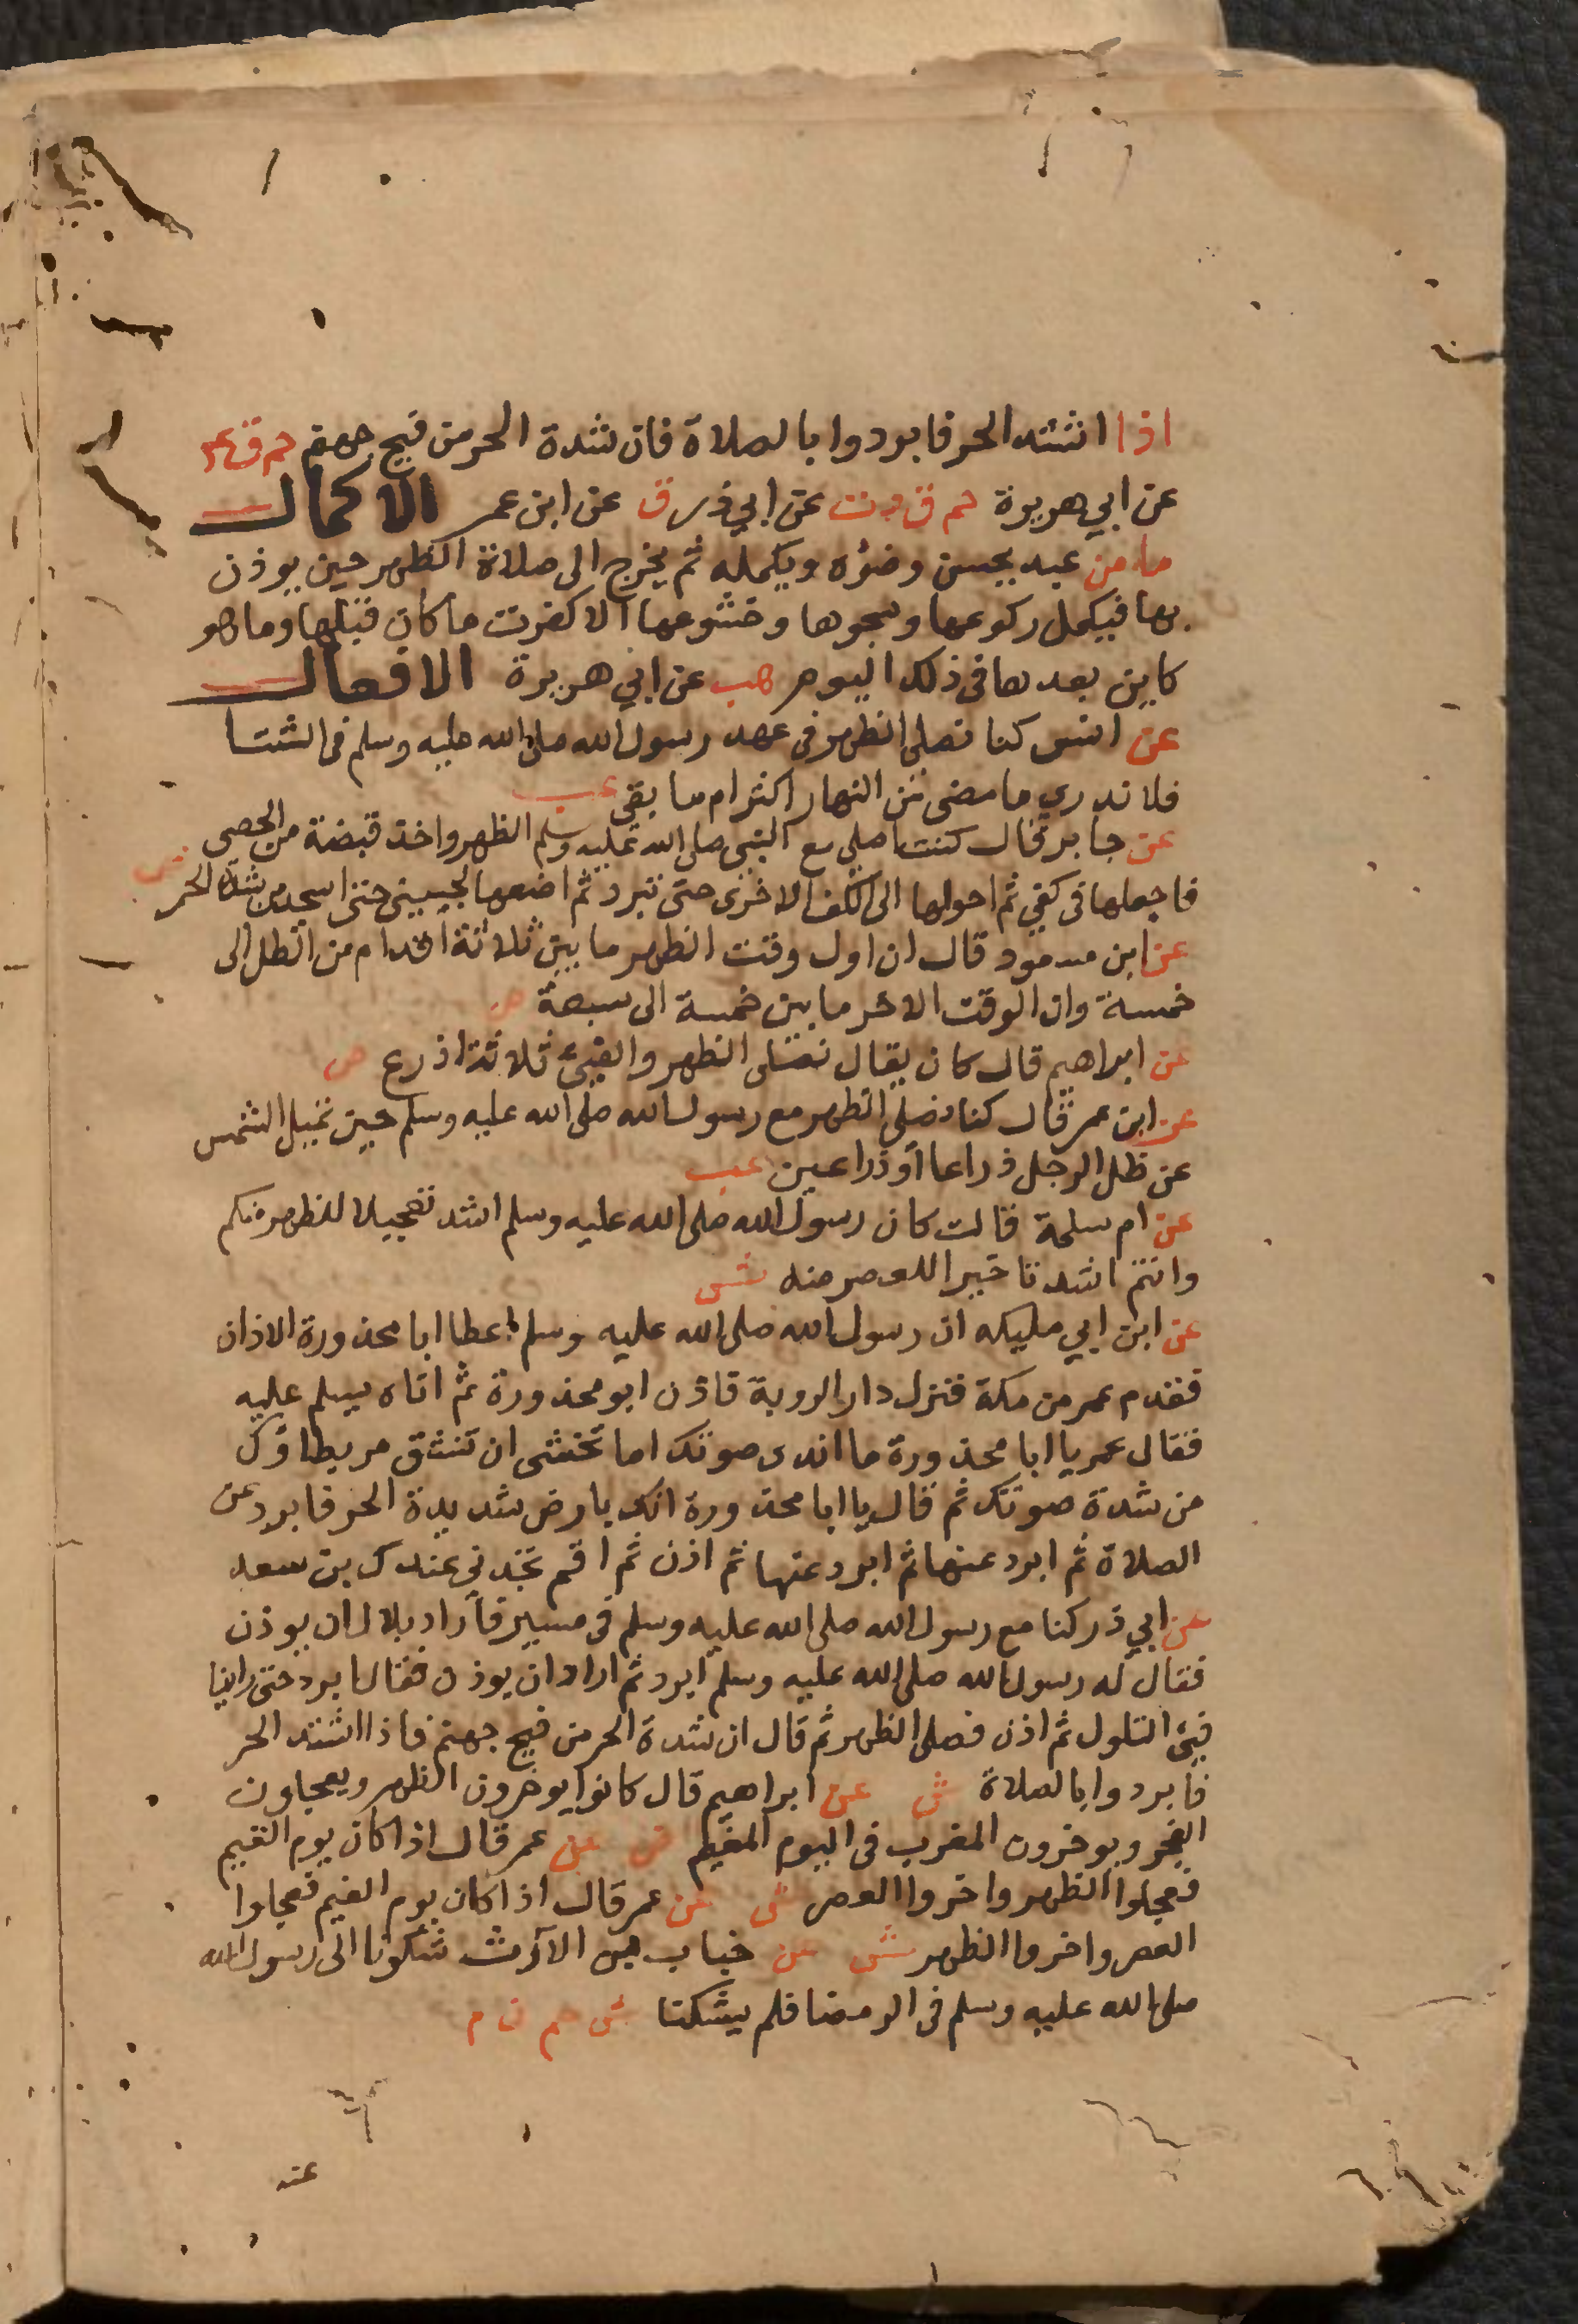 اذا اشتد الحر فابردوا بالصلاة فان شدة الحر من فيح جهنم حم ق عم
عن ابي هريرة حم ق د ت عن ابي ذر ق عن ابن عمر الاكمال
ما من عبد يحسن وضوه ويكمله ثم يخرج الى صلاة الظهر حين يوذن
بها فيكمل ركوعها وسجوها وخشوعها الا كفرت ما كان قبلها وما هو
كاين بعدها في ذلك اليوم هب عن ابي هريرة الافعال
عن انس كنا نصلى الظهر في عهد رسول الله صلى الله عليه وسلم في الشتا
فلا ندري ما مضى من النهار اكثر ام ما بقى عب
عن جابر قال كنت اصلي مع النبي صلى الله عليه وسلم الظهر واخذ قبضة من الحصى
فاجعلها في كفي ثم احولها الى الكف الاخرى حتى تبرد ثم اضعها لجبيني حتى اسجد من شدة الحر ش
عن ابن مسعود قال ان اول وقت الظهر ما بين ثلاثة اقدام من الظل الى
خمسة وان الوقت الاخر ما بين خمسة الى سبعة ص
عن ابراهيم قال كان يقال نصلى الظهر والفيئ ثلاثة اذرع ص
عن ابن عمر قال كنا نصلى الظهر مع رسول الله صلى الله عليه وسلم حين تميل الشمس
عن ظل الرجل ذراعا او ذراعين عب
عن ام سلمة قالت كان رسول الله صلى الله عليه وسلم اشد تعجيلا للظهر منكم
وانتم اشد تاخيرا للعصر منه ش
عن ابن ابي مليكه ان رسول الله صلى الله عليه وسلم اعطا ابا محذورة الاذان
فقدم عمر من مكة فنزل دار الروبة فاذن ابو محذورة ثم اتاه يسلم عليه
فقال عمر يا ابا محذورة ما اندى صوتك اما تخشى ان تنشق مريطاؤك
من شدة صوتك ثم قال يا ابا محذورة انك بارض شديدة الحر فابرد عن
الصلاة ثم ابرد عنها ثم ابرد عنها ثم اذن ثم اقم تجدني عندك بن سعد
عن ابي ذر كنا مع رسول الله صلى الله عليه وسلم في مسير فاراد بلال ان يوذن
فقال له رسول الله صلى الله عليه وسلم ابرد ثم اراد ان يوذن فقال ابرد حتى راينا
فيئ التلول ثم اذن فصلى الظهر ثم قال ان شدة الحر من فيح جهنم فاذا اشتد الحر
فابردوا بالصلاة ش عن ابراهيم قال كانوا يوخرون الظهر ويعجلون
الفجر ويوخرون المغرب في اليوم المغيم ش عن عمر قال اذا كان يوم الغيم
فعجلوا الظهر واخروا العصر ش عن عمر قال اذا كان يوم الغيم فعجلوا
العصر واخروا الظهر ش عن خباب بن الارث شكونا الى رسول الله
صلى الله عليه وسلم في الرمضا فلم يشكنا ش حم ن م
عند